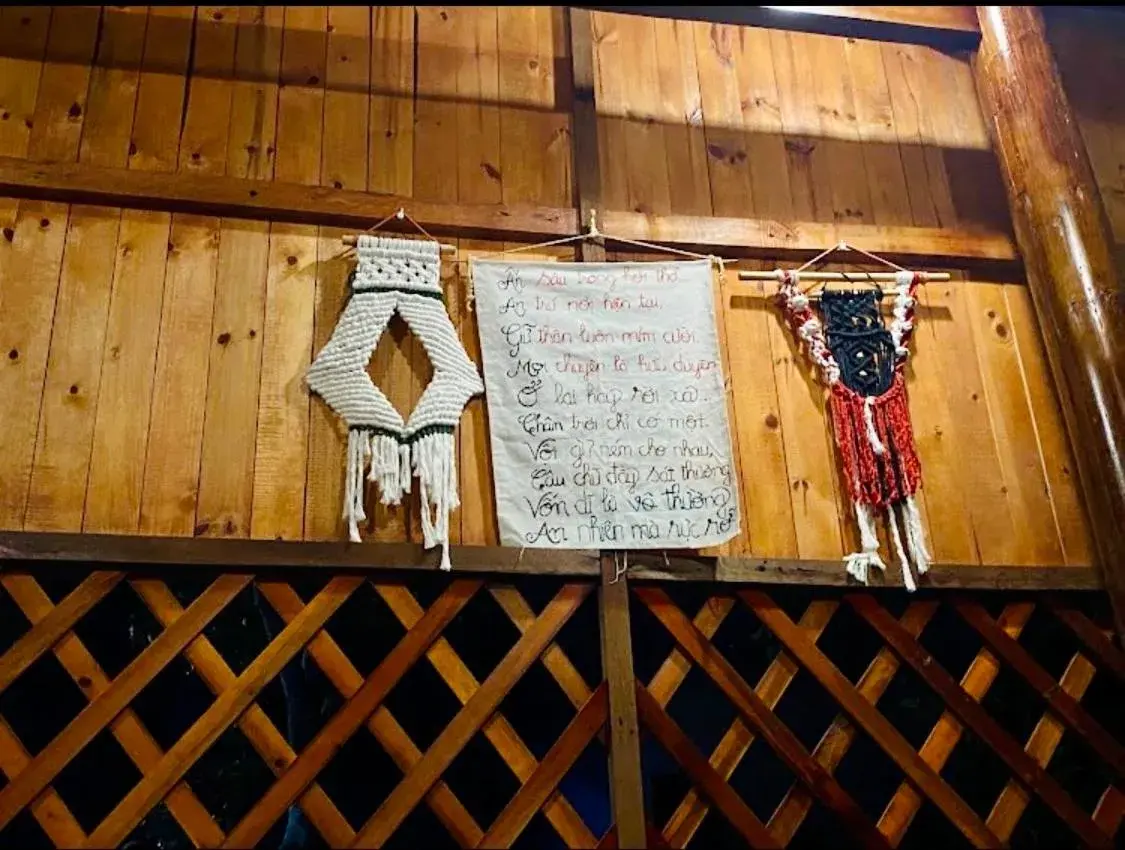 Ẩn sâu trong hơi thở...
An trú nơi hiện tại,
Giữ thân luôn mỉm cười.
Mọi chuyện là hữu duyên
Ở lại hay rời xa...
Chân trời chỉ có một.
Với gì ném cho nhau,
Câu chữ đầy sát thương
Vốn dĩ là vô thường
An nhiên mà rực rỡ